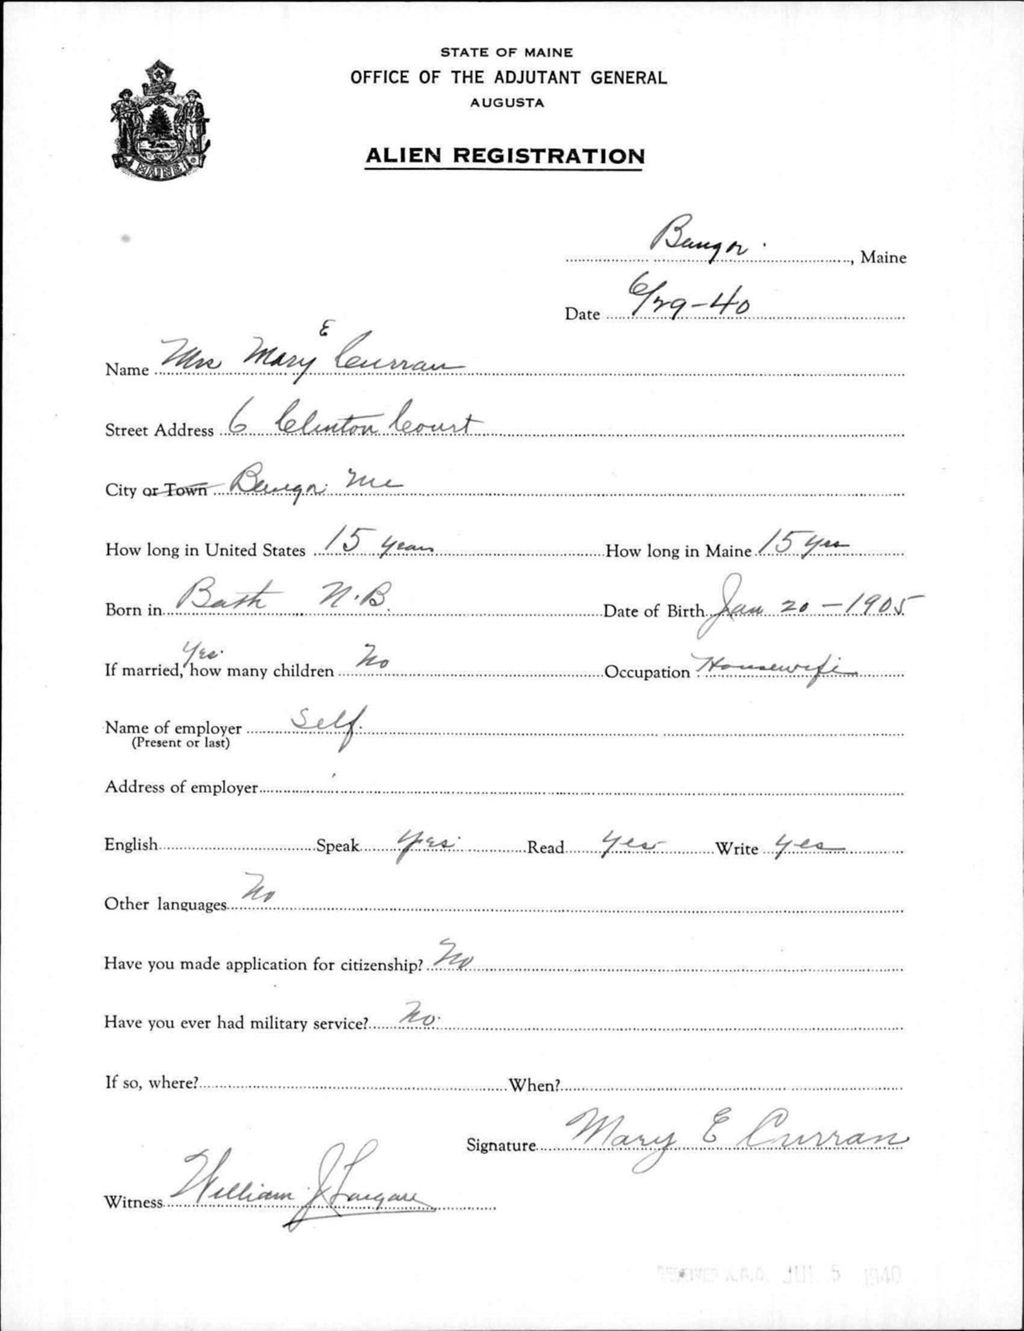 STATE OF MAINE
OFFICE OF THE ADJUTANT GENERAL
AUGUSTA
ALIEN REGISTRATION
MAINE
Bangor, Maine
Date 6/29-40
Name Mrs Mary E Curran
Street Address 6 Clinton Court
City or Town Bangor Me
How long in United States 15 years How long in Maine 15 yrs
Born in Bath N.B. Date of Birth Jan 20-1905
If married, Yes how many children No Occupation Housewife
Name of employer Self
(Present or last)
Address of employer
English Speak Yes Read Yes Write Yes
Other languages No
Have you made application for citizenship? No
Have you ever had military service? No
If so, where? When?
Signature Mary E Curran
Witness William J
RECEIVED A.G.O. JUL 5 1940